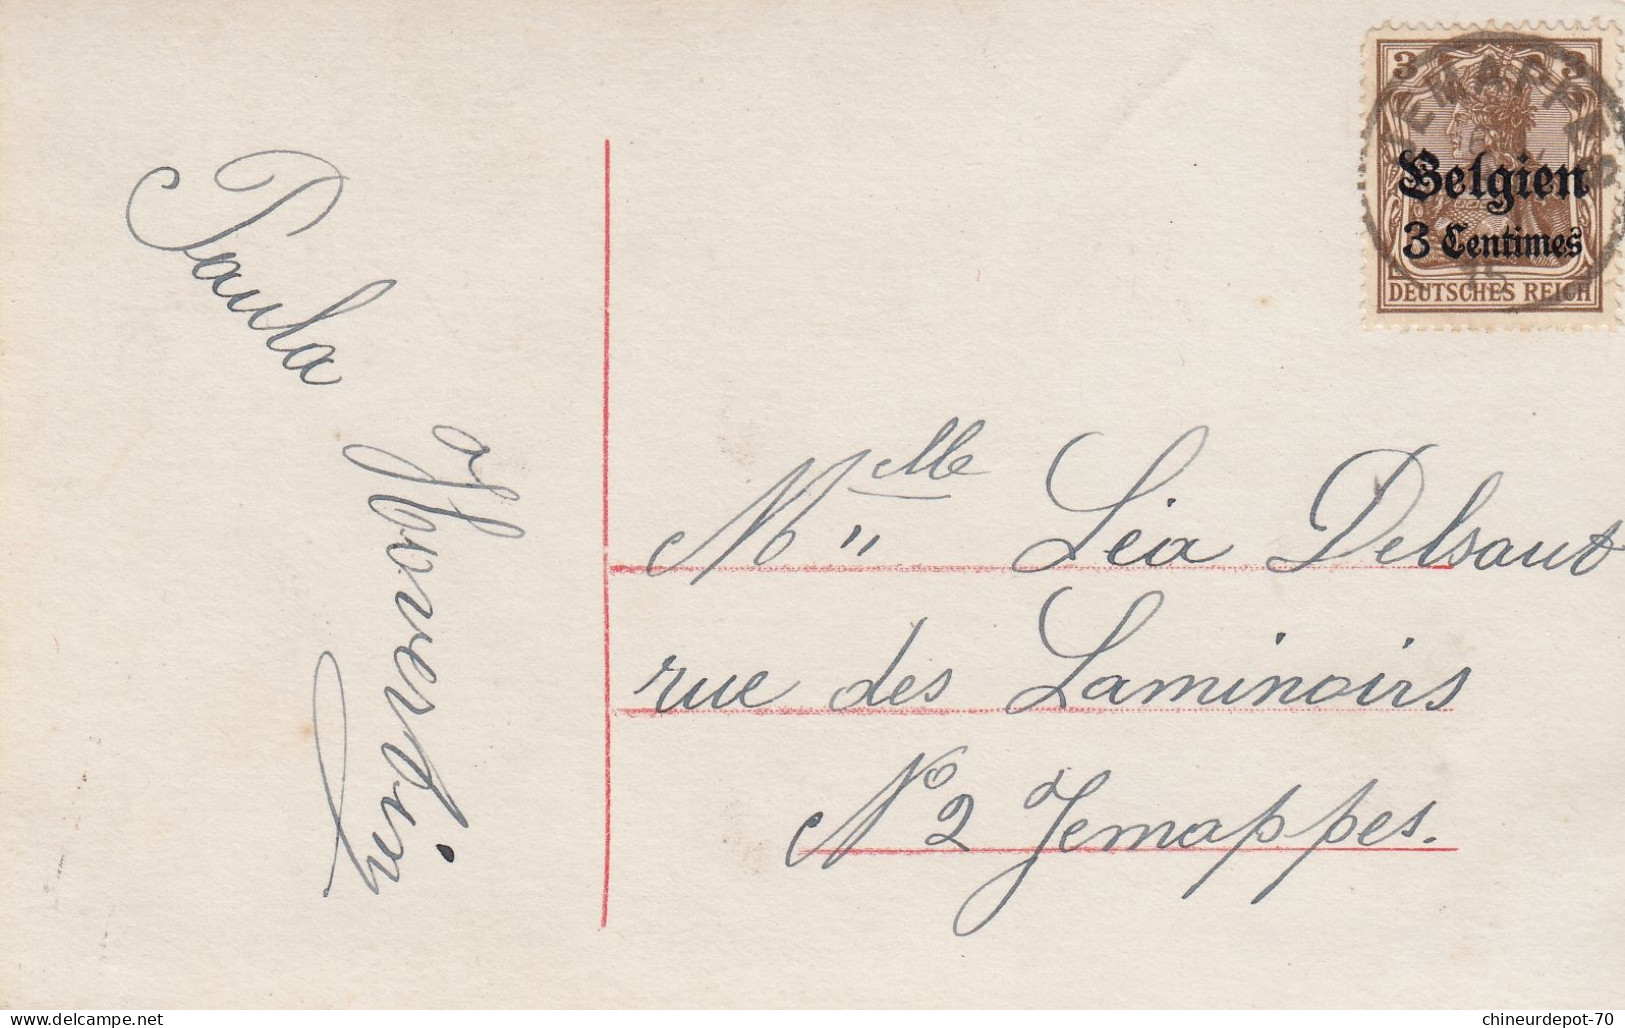 3 3
JEMAPPES
Belgien
3 Centimes
15
DEUTSCHES REICH
Paula
M^elle " Léa Delsaut
rue des Laminoirs
N° 2 Jemappes.
www.delcampe.net
chineurdepot-70